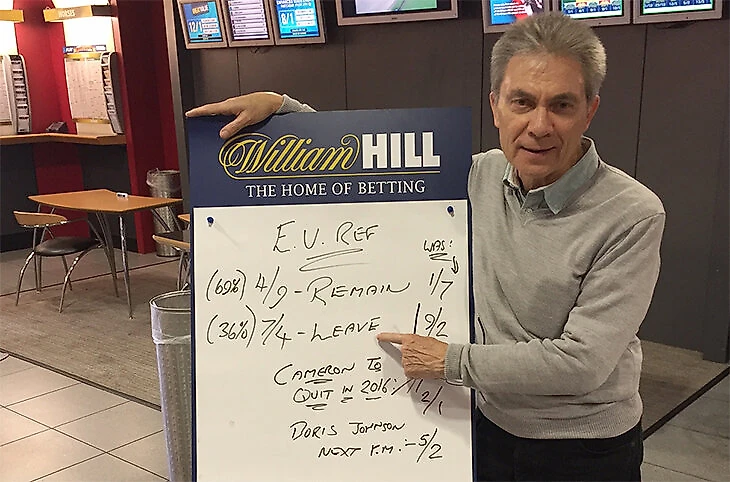 HORSES
12/1
8/1
William HILL
THE HOME OF BETTING
E.U. REF
WAS:
(69%) 4/9 - REMAIN 1/7
(36%) 7/4 - LEAVE 9/2
CAMERON TO
QUIT IN 2016:- 2/1
BORIS JOHNSON
NEXT P.M. :- 5/2